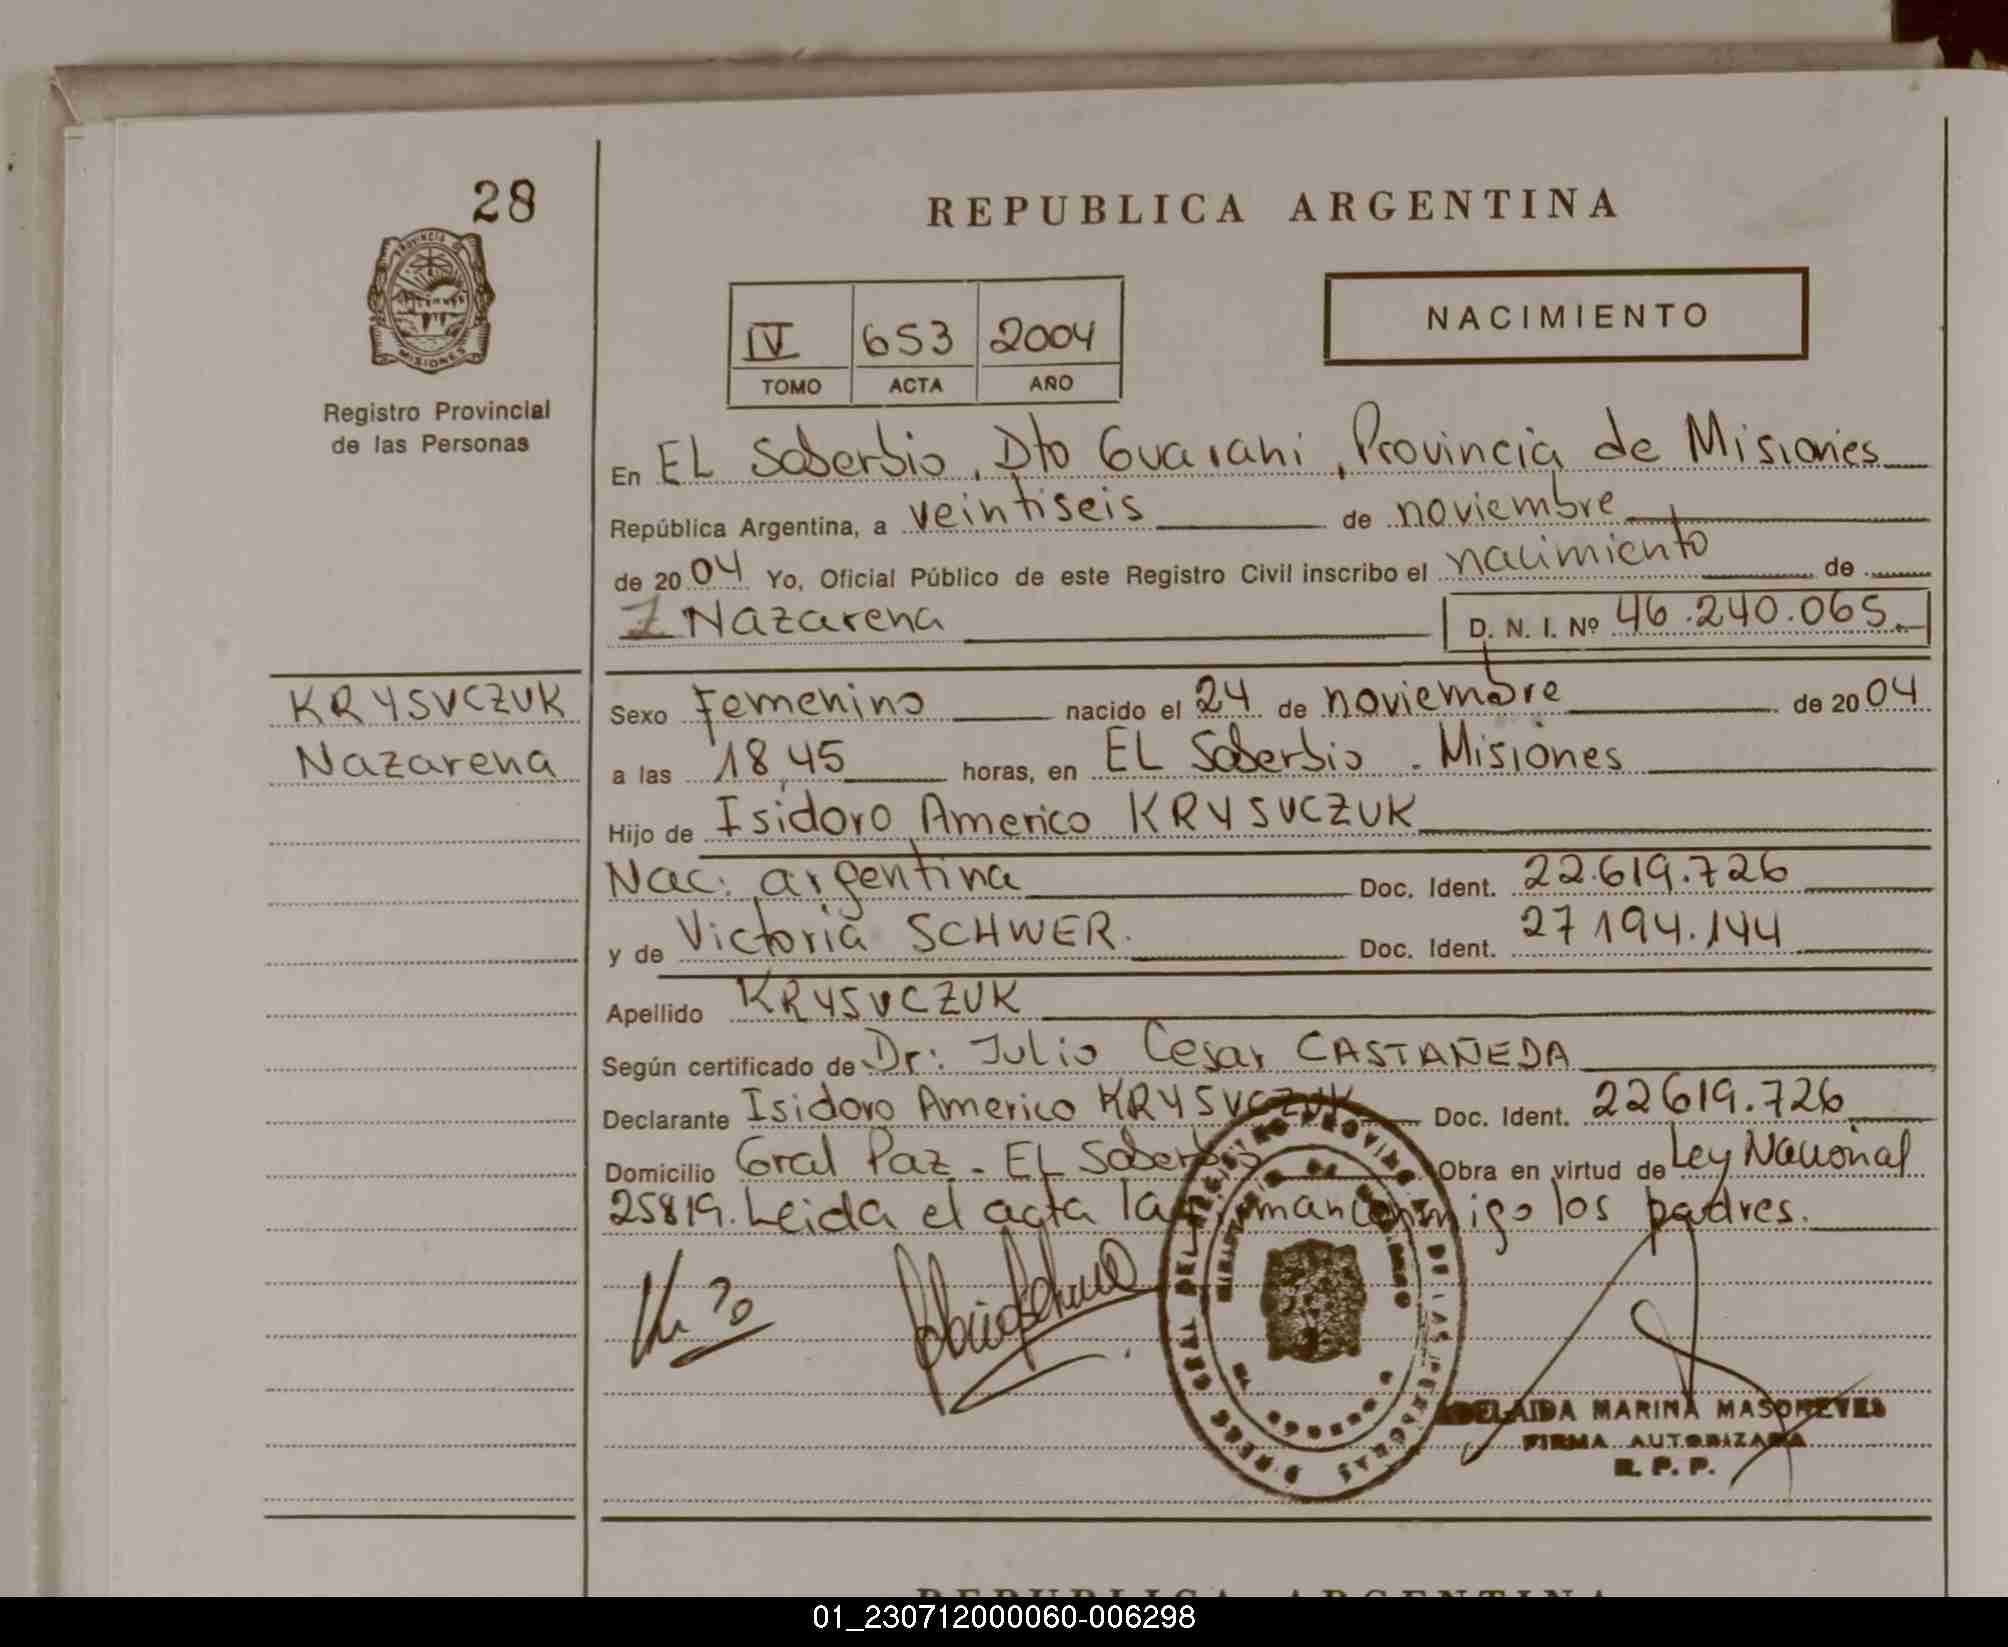 28
REPUBLICA ARGENTINA
PROVINCIA DE
MISIONES
NACIMIENTO
IV 653 2004
TOMO ACTA AÑO
Registro Provincial
de las Personas
En EL Soberbio, Dto Guarani, Provincia de Misiones
República Argentina, a veintiseis de noviembre
de 2004 Yo, Oficial Público de este Registro Civil inscribo el nacimiento de
Nazarena D. N. I. Nº 46.240.065.
KRYSVCZUK
Nazarena
Sexo Femenino nacido el 24 de noviembre de 2004
a las 18,45 horas, en EL Soberbio - Misiones
Hijo de Isidoro Americo KRYSVCZUK
Nac: argentina Doc. Ident. 22.619.726
y de Victoria SCHWER. Doc. Ident. 27 194.144
Apellido KRYSVCZUK
Según certificado de Dr: Julio Cesar CASTAÑEDA
Declarante Isidoro Americo KRYSVCZUK Doc. Ident. 22619.726
Domicilio Gral Paz - EL Soberbio Obra en virtud de Ley Nacional
25819. Leida el acta la firman conmigo los padres.
GRAL DEL REGISTRO PROVINCIAL DE LAS PERSONAS
ADELAIDA MARINA MASONEVES
FIRMA AUTORIZADA
R. P. P.
REPUBLICA ARGENTINA
01_230712000060-006298